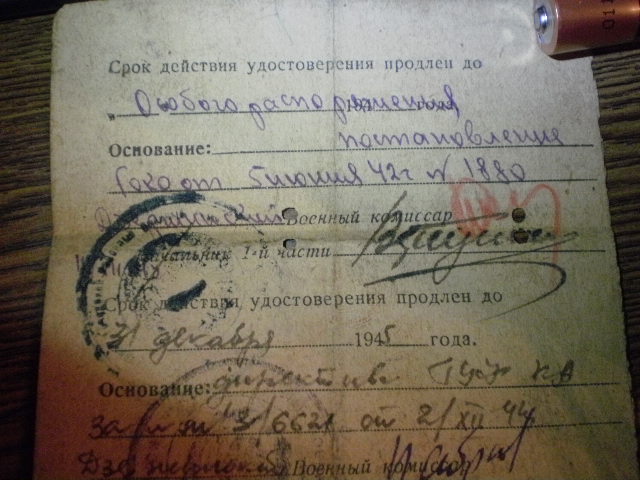 Срок действия удостоверения продлен до
"Особого распоряжения
Основание: постановление
Гоко от 5 июня 42г N 1880
Военный комиссар
Начальник 1-й части
Срок действия удостоверения продлен до
31 декабря 1945 года.
Основание: директива ГУФ КА
за от 2/XII 44
Военный комиссар